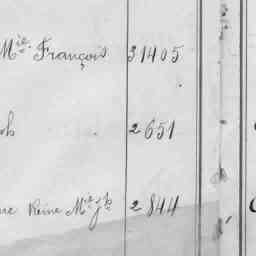 Mie François 31405
ph 2651
ne Reine Mie Jh 2844